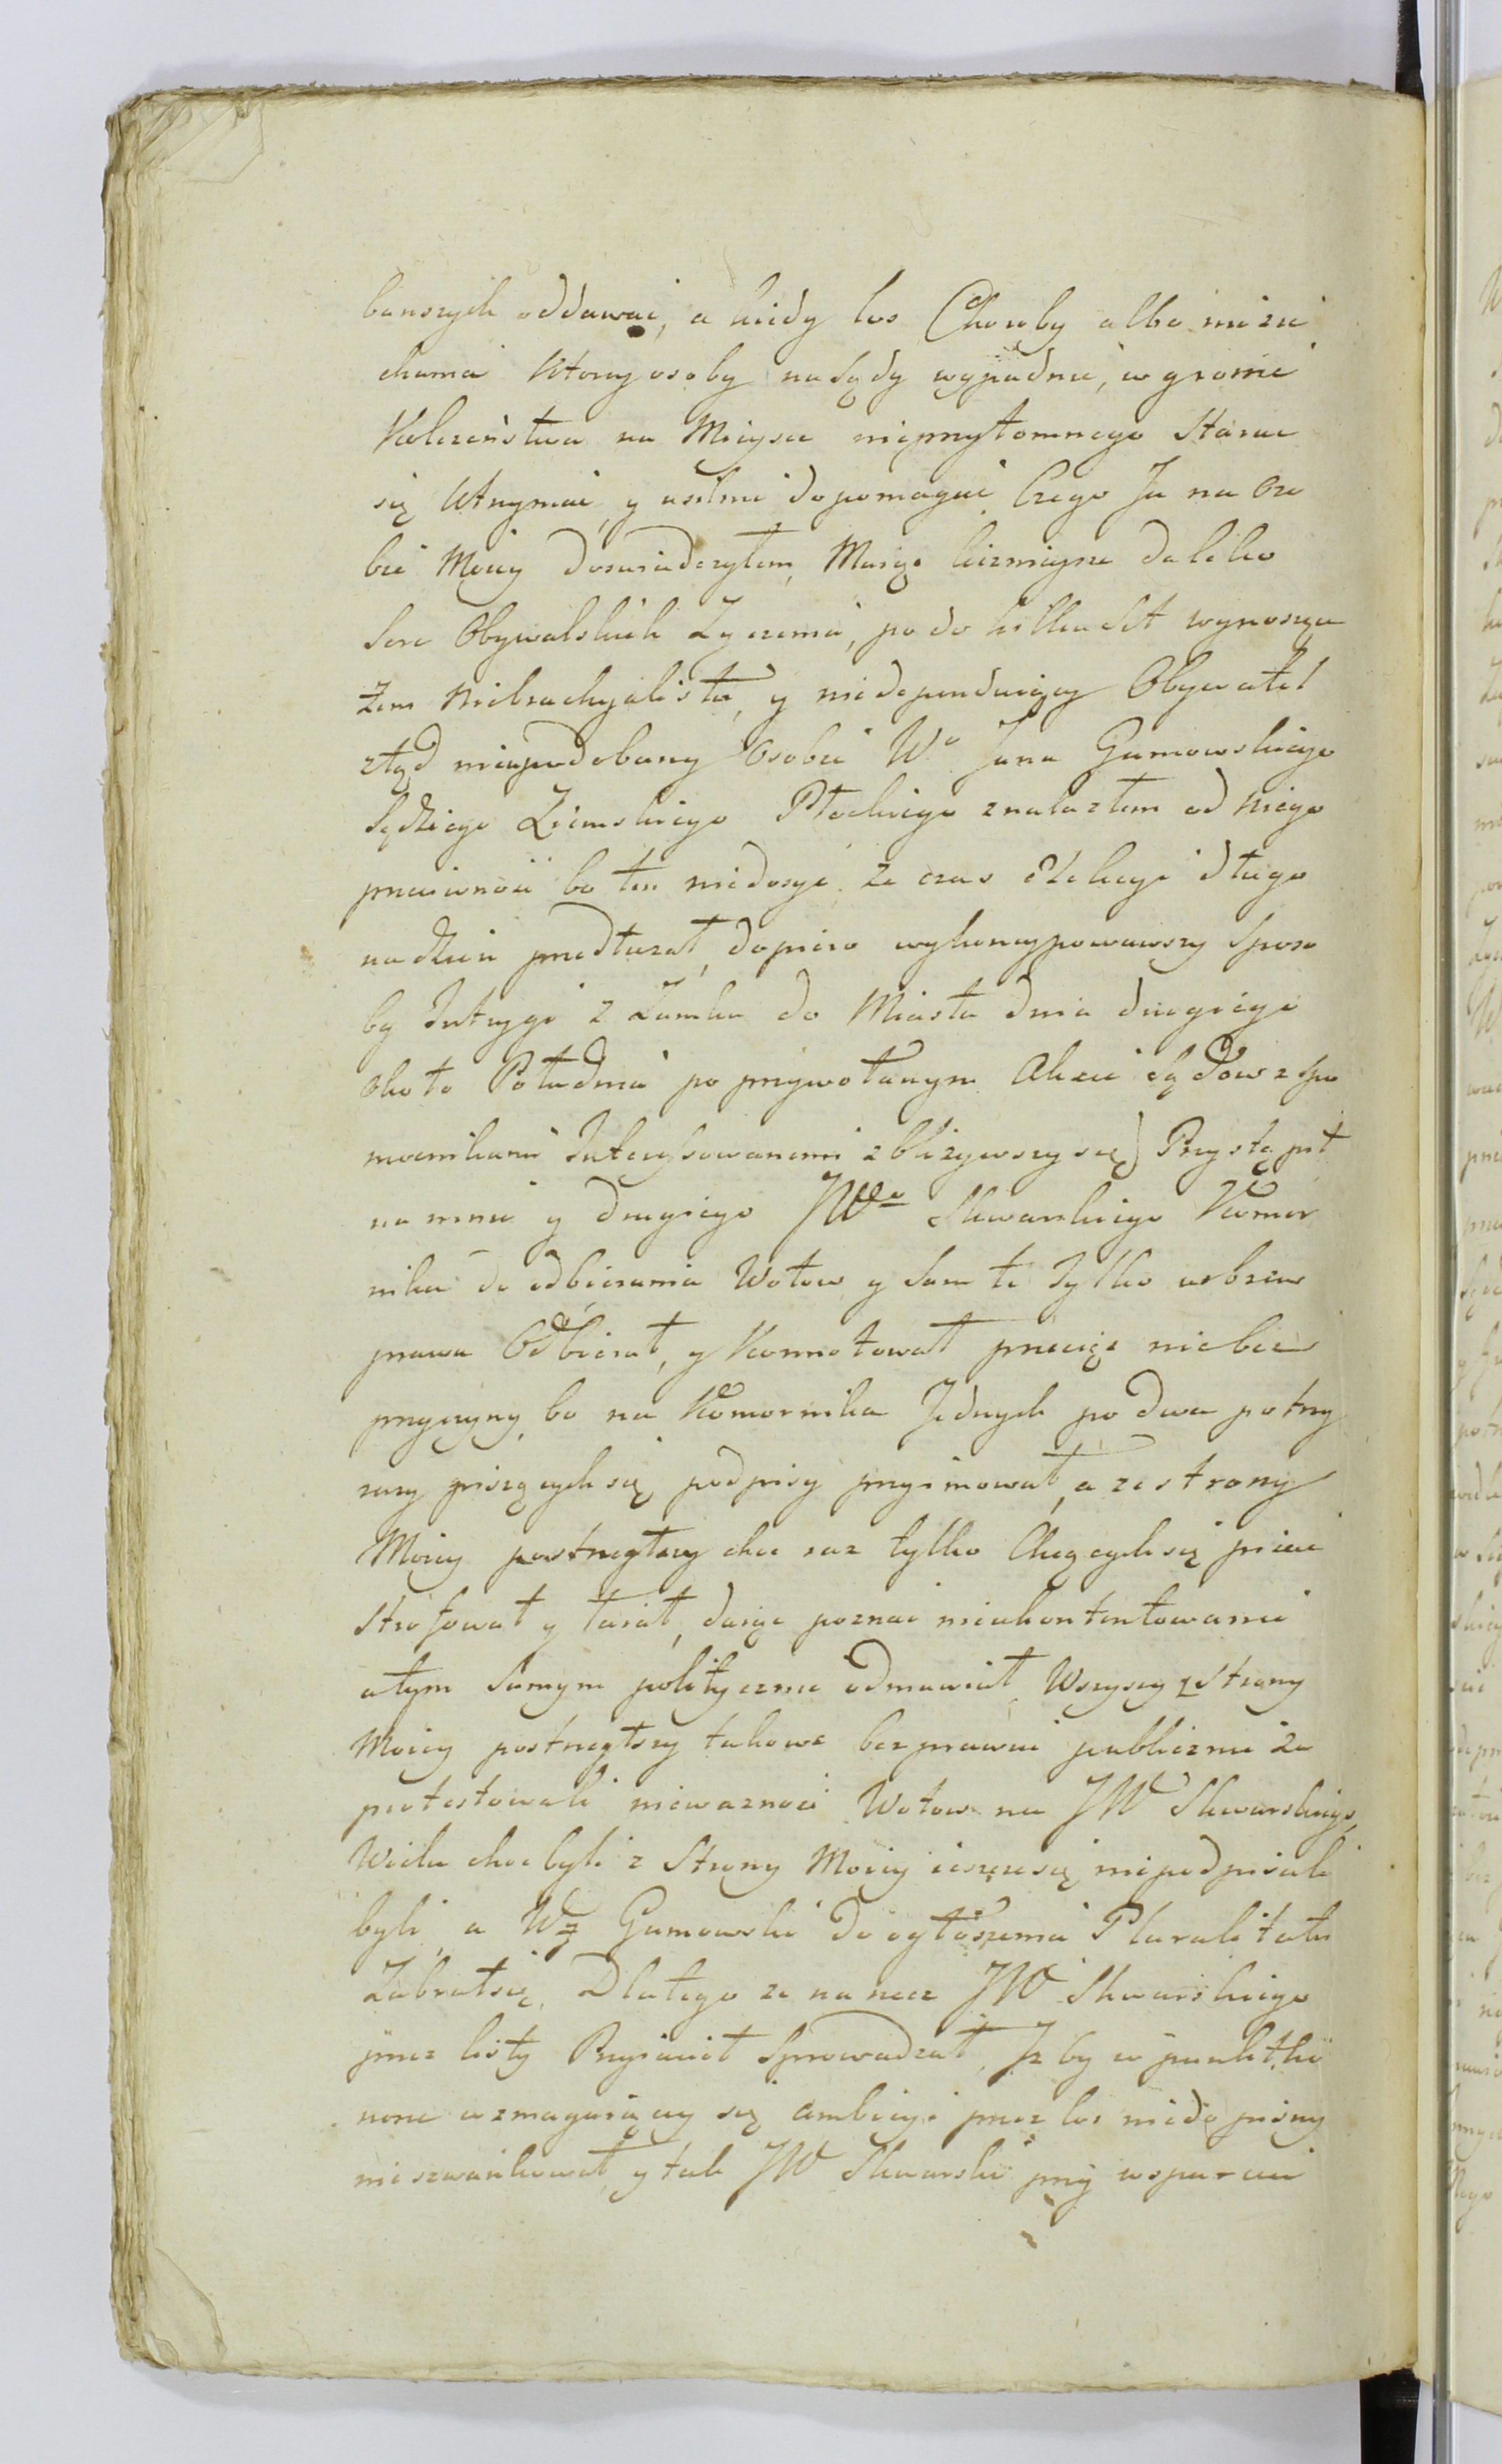 banszych oddawać, a kiedy los Choroby albo nieżie
chania Ktorey osoby na Sądy wypadnie, w gronie
Koleżeństwa na Mieysce nieprzytomnego Starac
się Utrzymać, y usilnie dopomagać Czego Ja na Oso
bie Moiey doswiadczyłem, Maiąc liczniejsze daleko
Serc Obywatelskich Zyczenia, po do kilku Set wynoszące
Żem Niebrachyalista, y niedependuiący Obywatel
ztąd nieupodobany Osobie Wo Jana Gumowskiego
Sędziego Ziemskiego Płockiego znalazłem od Niego
przeciwność bo ten niedosyć że czas Elekcyi długo
na dzień przedłużał, dopiero wykoncypowawszy Sposo
by Intrygi z Zamku do Miasta dnia drugiego
około Południa po przywołanym Akcie Sądow z Spo
mocnikami Interessowanemi zbliżywszy się) Przystąpił
na mnie y drugiego JWo Skwarskiego Komor
nika do odbierania Wotow y Sam te tylko wbrew
prawa Odbierał, y Konnotował przecież nie bez
przyczyny, bo na Komornika Jednych po dwa po trzy
razy piszących się podpisy przyimował, a ze strony
Moiey postrzegłszy choc raz tylko Chcących się pisac
Strofował y łaiał, daiąc poznac nieukontentowanie
a tym Samym politycznie odmawiał, Wszyscy z Strony
Moiey postrzegłszy takowe bezprawie publicznie za
protestowali nieważność Wotow na JW Skwarskiego,
Wielu choc byli z Strony Moiey ieszcze się niepodpisali
byli, a W Gumowski do ogłoszenia Pluralitatu
Zabrał się, Dlatego że na rzecz JW Skwarskiego
przez listy Przyiacioł Sprowadzał, Iż by w punkcie
honoru wzmagaiącey się ambicyi przez los niedopiszny
nieszwankował, y tak JW Skwarski przy wsparciu